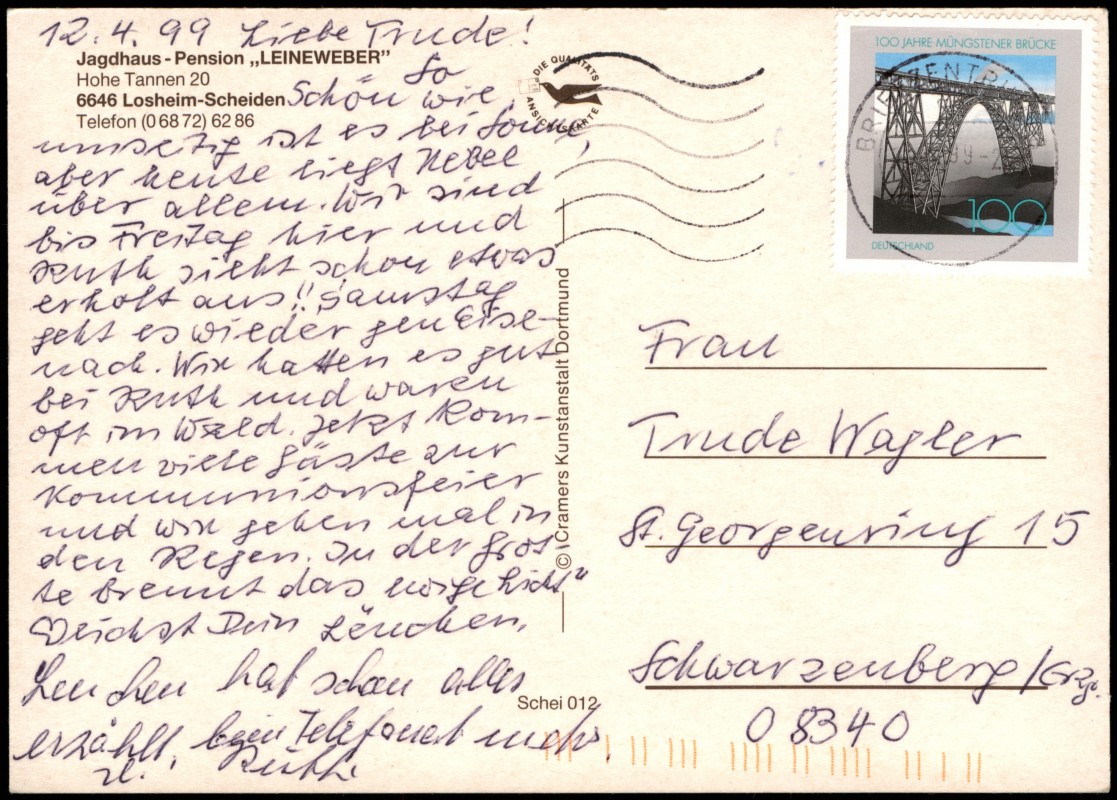 12.4.99 Liebe Trude!
Jagdhaus - Pension „LEINEWEBER"
Hohe Tannen 20
6646 Losheim-Scheiden
Telefon (0 68 72) 62 86
So
Schön wie
umseitig ist es bei Sonne,
aber heute liegt Nebel
über allem. Wir sind
bis Freitag hier und
Ruth sieht schon etwas
erholt aus!! Samstag
geht es wieder gen Eise-
nach. Wir hatten es gut
bei Ruth und waren
oft im Wald. Jetzt kom-
men viele Gäste zur
Kommunionsfeier
und wir gehen mal in
den Regen. In der Grot
te brennt das
Dein Lenchen.
Lenchen hat schon alles
erzählt, beim Telefonat mehr.
Ruth.
DIE QUALITÄTS
ANSICHTSKARTE
© Cramers Kunstanstalt Dortmund
Schei 012
100 JAHRE MÜNGSTENER BRÜCKE
100
DEUTSCHLAND
Frau
Trude Wagler
St. Georgenring 15
Schwarzenberg/Erzg.
08340